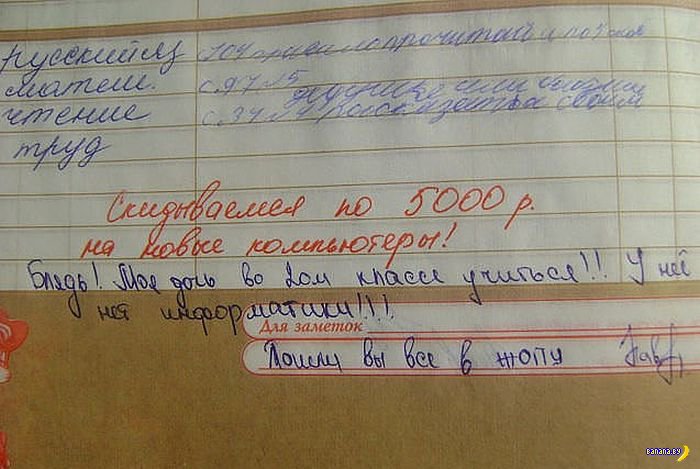 русский яз с104 правило прочитай и
матем. с. 97 № 5
чтение с. 34 № 4
труд
Скидываемся по 5000 р.
на новые компьютеры!
Блядь! Моя дочь во 2ом классе учиться!!! У неё
нет информатики!!!!
Для заметок
Пошли вы все в жопу
BANANA.BY